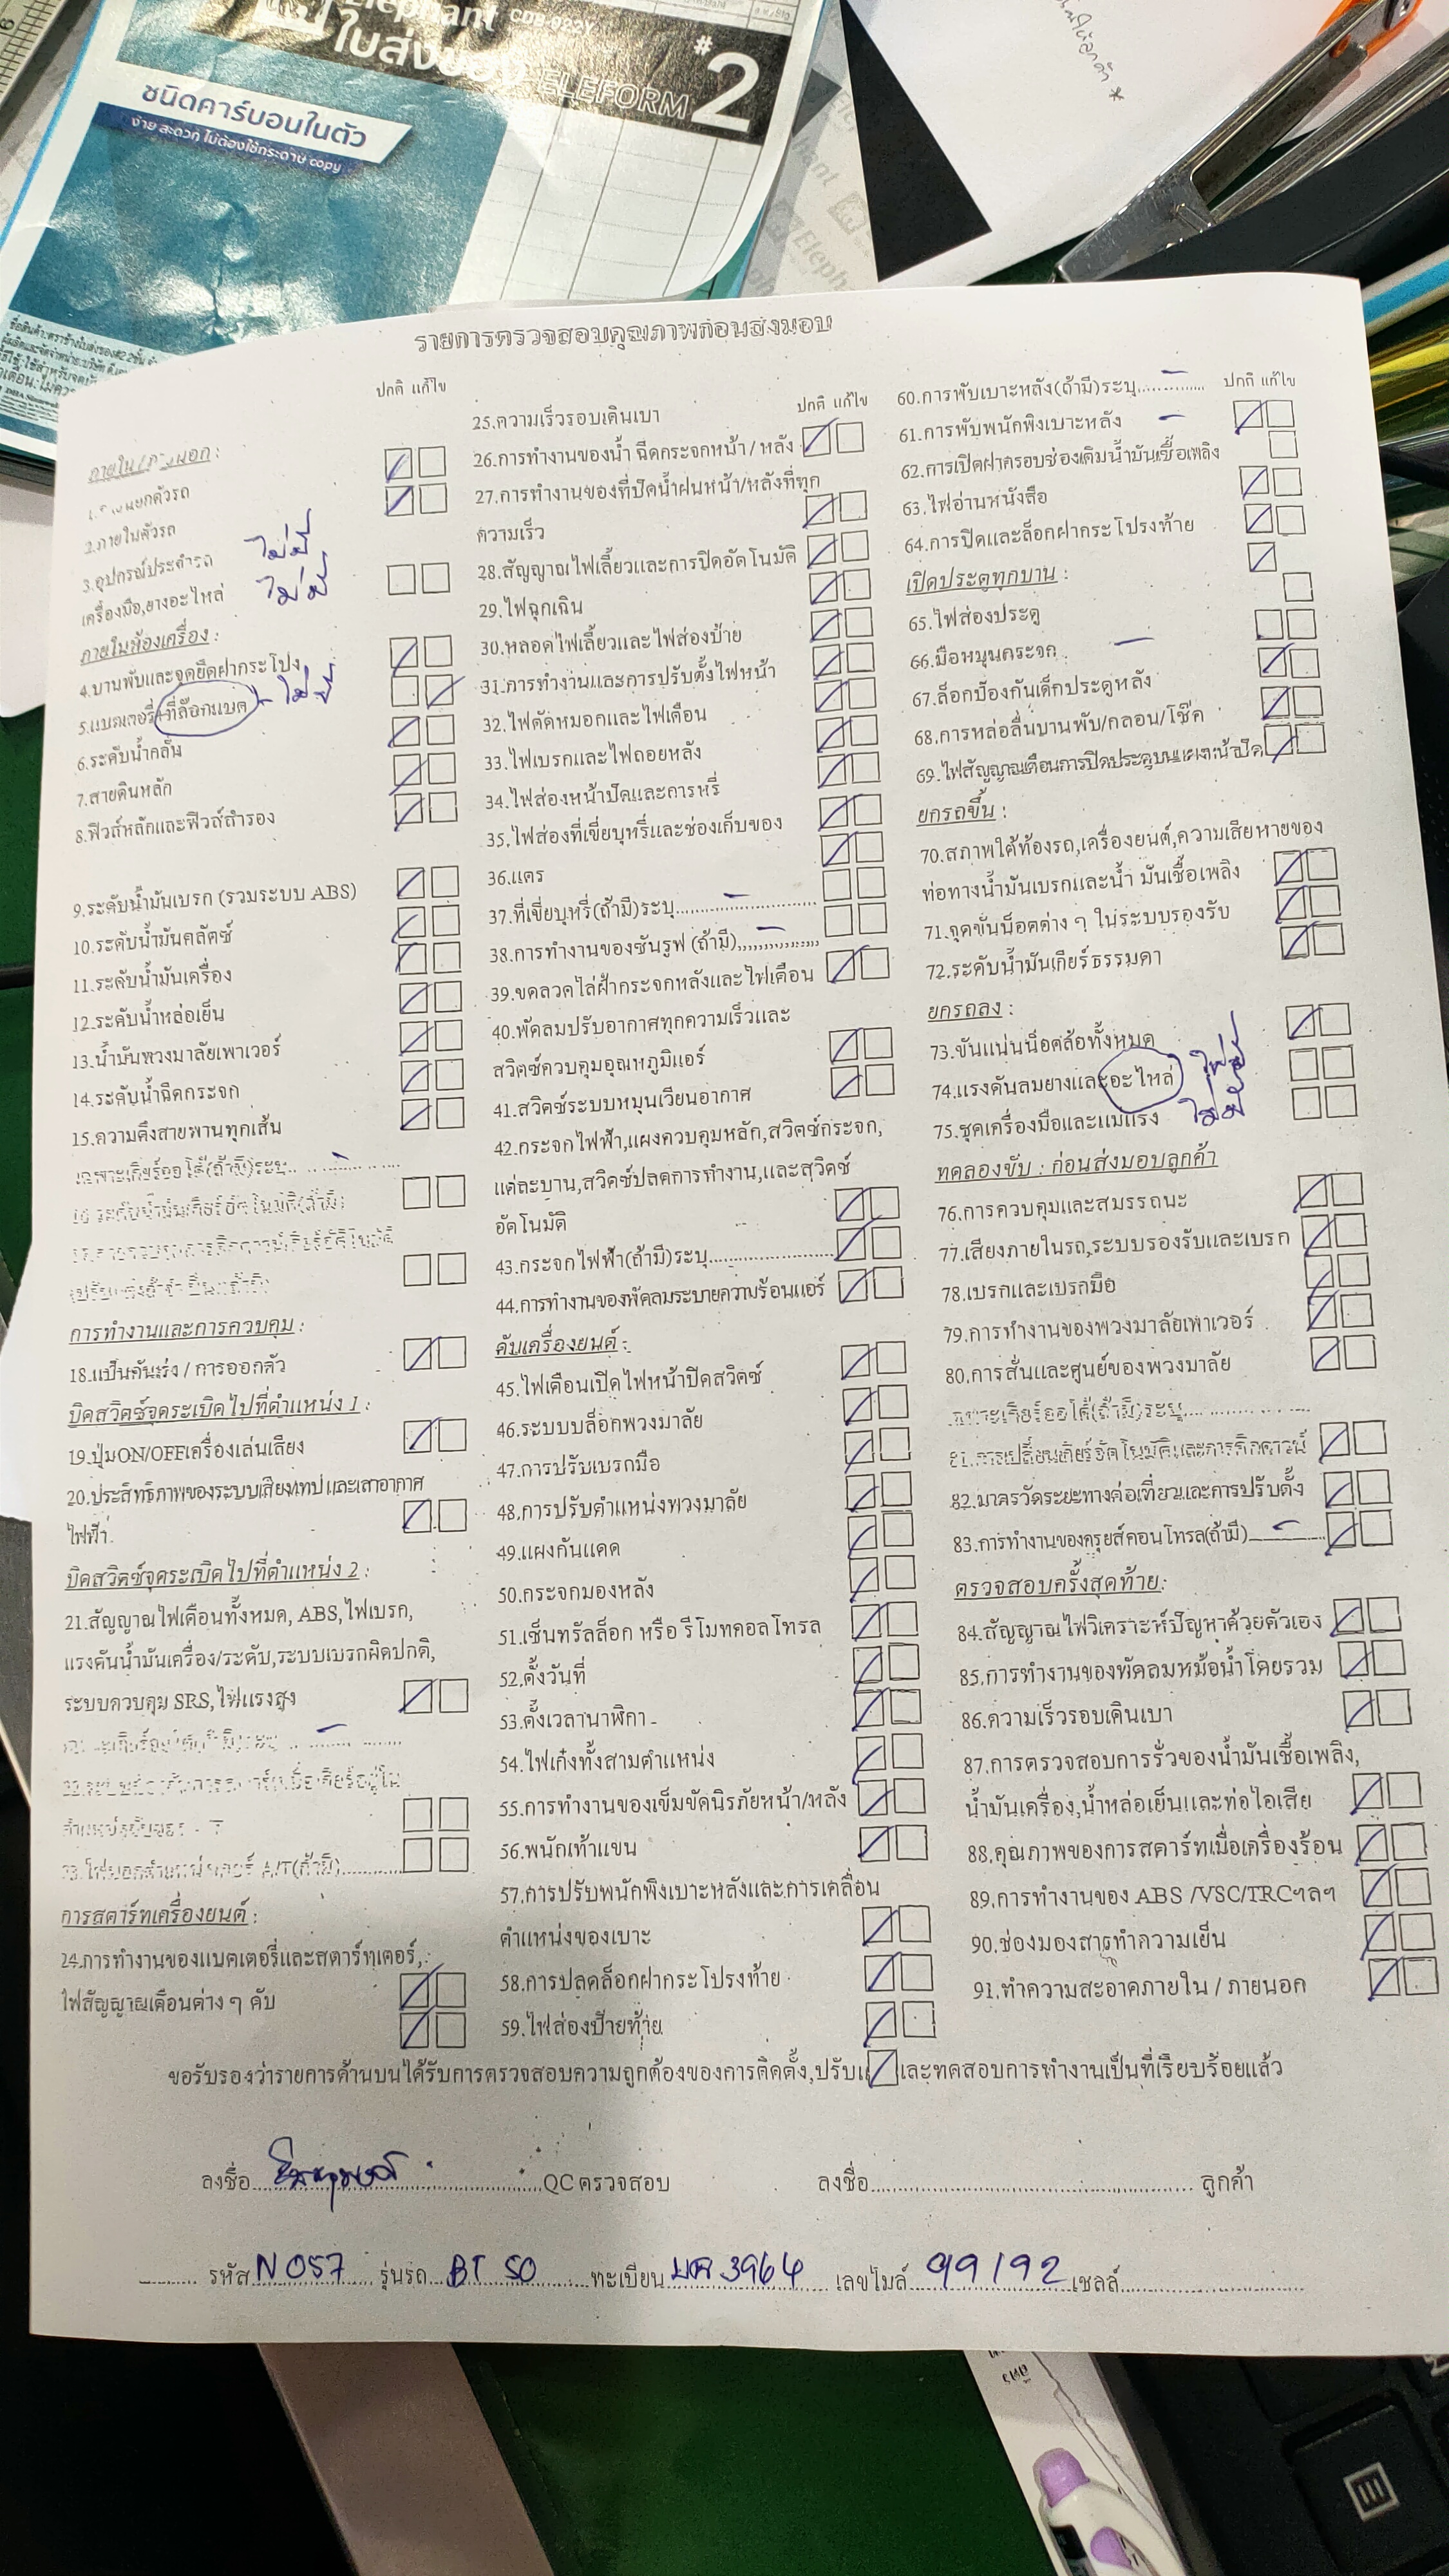 Elephant
ใบส่งของ ELEFORM #2
ชนิดคาร์บอนในตัว
ง่าย สะดวก ไม่ต้องใช้กระดาษ copy
Elephant
รายการตรวจสอบคุณภาพก่อนส่งมอบ
ปกติ แก้ไข
ภายใน/ภายนอก :
2.ภายในตัวรถ
3.อุปกรณ์ประจำรถ ไม่มี
เครื่องมือ,ยางอะไหล่ ไม่มี
ภายในห้องเครื่อง :
4.บานพับและจุดยึดฝากระโปรง
5.แบตเตอรี่+ที่ล๊อกแบต - ไม่มี
6.ระดับน้ำกลั่น
7.สายดินหลัก
8.ฟิวส์หลักและฟิวส์สำรอง
9.ระดับน้ำมันเบรก (รวมระบบ ABS)
10.ระดับน้ำมันคลัตช์
11.ระดับน้ำมันเครื่อง
12.ระดับน้ำหล่อเย็น
13.น้ำมันพวงมาลัยเพาเวอร์
14.ระดับน้ำฉีดกระจก
15.ความตึงสายพานทุกเส้น
เฉพาะเกียร์ออโต้(ถ้ามี)ระบุ
การทำงานและการควบคุม :
18.แป้นคันเร่ง / การออกตัว
บิดสวิตซ์จุดระเบิดไปที่ตำแหน่ง 1 :
19.ปุ่มON/OFFเครื่องเล่นเสียง
20.ประสิทธิภาพของระบบเสียงเทป และเสาอากาศ
ไฟฟ้า
บิดสวิตซ์จุดระเบิดไปที่ตำแหน่ง 2 :
21.สัญญาณไฟเตือนทั้งหมด, ABS,ไฟเบรก,
แรงดันน้ำมันเครื่อง/ระดับ,ระบบเบรกผิดปกติ,
ระบบควบคุม SRS,ไฟแรงสูง
A/T(ถ้ามี)
การสตาร์ทเครื่องยนต์ :
24.การทำงานของแบตเตอรี่และสตาร์ทเตอร์,
ไฟสัญญาณเตือนต่าง ๆ ดับ
25.ความเร็วรอบเดินเบา
ปกติ แก้ไข
26.การทำงานของน้ำ ฉีดกระจกหน้า / หลัง
27.การทำงานของที่ปัดน้ำฝนหน้า/หลังที่ทุก
ความเร็ว
28.สัญญาณไฟเลี้ยวและการปิดอัตโนมัติ
29.ไฟฉุกเฉิน
30.หลอดไฟเลี้ยวและไฟส่องป้าย
31.การทำงานและการปรับตั้งไฟหน้า
32.ไฟตัดหมอกและไฟเตือน
33.ไฟเบรกและไฟถอยหลัง
34.ไฟส่องหน้าปัดและการหรี่
35.ไฟส่องที่เขี่ยบุหรี่และช่องเก็บของ
36.แตร
37.ที่เขี่ยบุหรี่(ถ้ามี)ระบุ
38.การทำงานของซันรูฟ (ถ้ามี)
39.ขดลวดไล่ฝ้ากระจกหลังและไฟเตือน
40.พัดลมปรับอากาศทุกความเร็วและ
สวิตซ์ควบคุมอุณหภูมิแอร์
41.สวิตซ์ระบบหมุนเวียนอากาศ
42.กระจกไฟฟ้า,แผงควบคุมหลัก,สวิตซ์กระจก,
แต่ละบาน,สวิตซ์ปลดการทำงาน,และสวิตซ์
อัตโนมัติ
43.กระจกไฟฟ้า(ถ้ามี)ระบุ
44.การทำงานของพัดลมระบายความร้อนแอร์
ดับเครื่องยนต์ :
45.ไฟเตือนเปิดไฟหน้าปิดสวิตซ์
46.ระบบบล็อกพวงมาลัย
47.การปรับเบรกมือ
48.การปรับตำแหน่งพวงมาลัย
49.แผงกันแดด
50.กระจกมองหลัง
51.เซ็นทรัลล็อก หรือ รีโมทคอลโทรล
52.ตั้งวันที่
53.ตั้งเวลานาฬิกา
54.ไฟเก๋งทั้งสามตำแหน่ง
55.การทำงานของเข็มขัดนิรภัยหน้า/หลัง
56.พนักเท้าแขน
57.การปรับพนักพิงเบาะหลังและการเคลื่อน
ตำแหน่งของเบาะ
58.การปลดล็อกฝากระโปรงท้าย
59.ไฟส่องป้ายท้าย
60.การพับเบาะหลัง(ถ้ามี)ระบุ
ปกติ แก้ไข
61.การพับพนักพิงเบาะหลัง
62.การเปิดฝาครอบช่องเติมน้ำมันเชื้อเพลิง
63.ไฟอ่านหนังสือ
64.การปิดและล็อกฝากระโปรงท้าย
เปิดประตูทุกบาน :
65.ไฟส่องประตู
66.มือหมุนกระจก
67.ล็อกป้องกันเด็กประตูหลัง
68.การหล่อลื่นบานพับ/กลอน/โช๊ค
69.ไฟสัญญาณเตือนการปิดประตูบนแผงหน้าปัด
ยกรถขึ้น :
70.สภาพใต้ท้องรถ,เครื่องยนต์,ความเสียหายของ
ท่อทางน้ำมันเบรกและน้ำ มันเชื้อเพลิง
71.จุดขันน็อคต่าง ๆ ในระบบรองรับ
72.ระดับน้ำมันเกียร์ธรรมดา
ยกรถลง :
73.ขันแน่นน็อตล้อทั้งหมด
74.แรงดันลมยางและอะไหล่ ไม่มี
75.ชุดเครื่องมือและแม่แรง ไม่มี
ทดลองขับ : ก่อนส่งมอบลูกค้า
76.การควบคุมและสมรรถนะ
77.เสียงภายในรถ,ระบบรองรับและเบรก
78.เบรกและเบรกมือ
79.การทำงานของพวงมาลัยเพาเวอร์
80.การสั่นและศูนย์ของพวงมาลัย
เฉพาะเกียร์ออโต้(ถ้ามี)ระบุ
81.การเปลี่ยนเกียร์อัตโนมัติและการคิกดาวน์
82.มาตรวัดระยะทางต่อเที่ยวและการปรับตั้ง
83.การทำงานของครุยส์คอนโทรล(ถ้ามี)
ตรวจสอบครั้งสุดท้าย:
84.สัญญาณไฟวิเคราะห์ปัญหาด้วยตัวเอง
85.การทำงานของพัดลมหม้อน้ำโดยรวม
86.ความเร็วรอบเดินเบา
87.การตรวจสอบการรั่วของน้ำมันเชื้อเพลิง,
น้ำมันเครื่อง,น้ำหล่อเย็นและท่อไอเสีย
88.คุณภาพของการสตาร์ทเมื่อเครื่องร้อน
89.การทำงานของ ABS /VSC/TRCฯลฯ
90.ช่องมองสารทำความเย็น
91.ทำความสะอาดภายใน / ภายนอก
ขอรับรองว่ารายการด้านบนได้รับการตรวจสอบความถูกต้องของการติดตั้ง,ปรับแ และทดสอบการทำงานเป็นที่เรียบร้อยแล้ว
ลงชื่อ QC ตรวจสอบ ลงชื่อ ลูกค้า
รหัส N 057 รุ่นรถ BT 50 ทะเบียน 3964 เลขไมล์ 99192 เซลล์